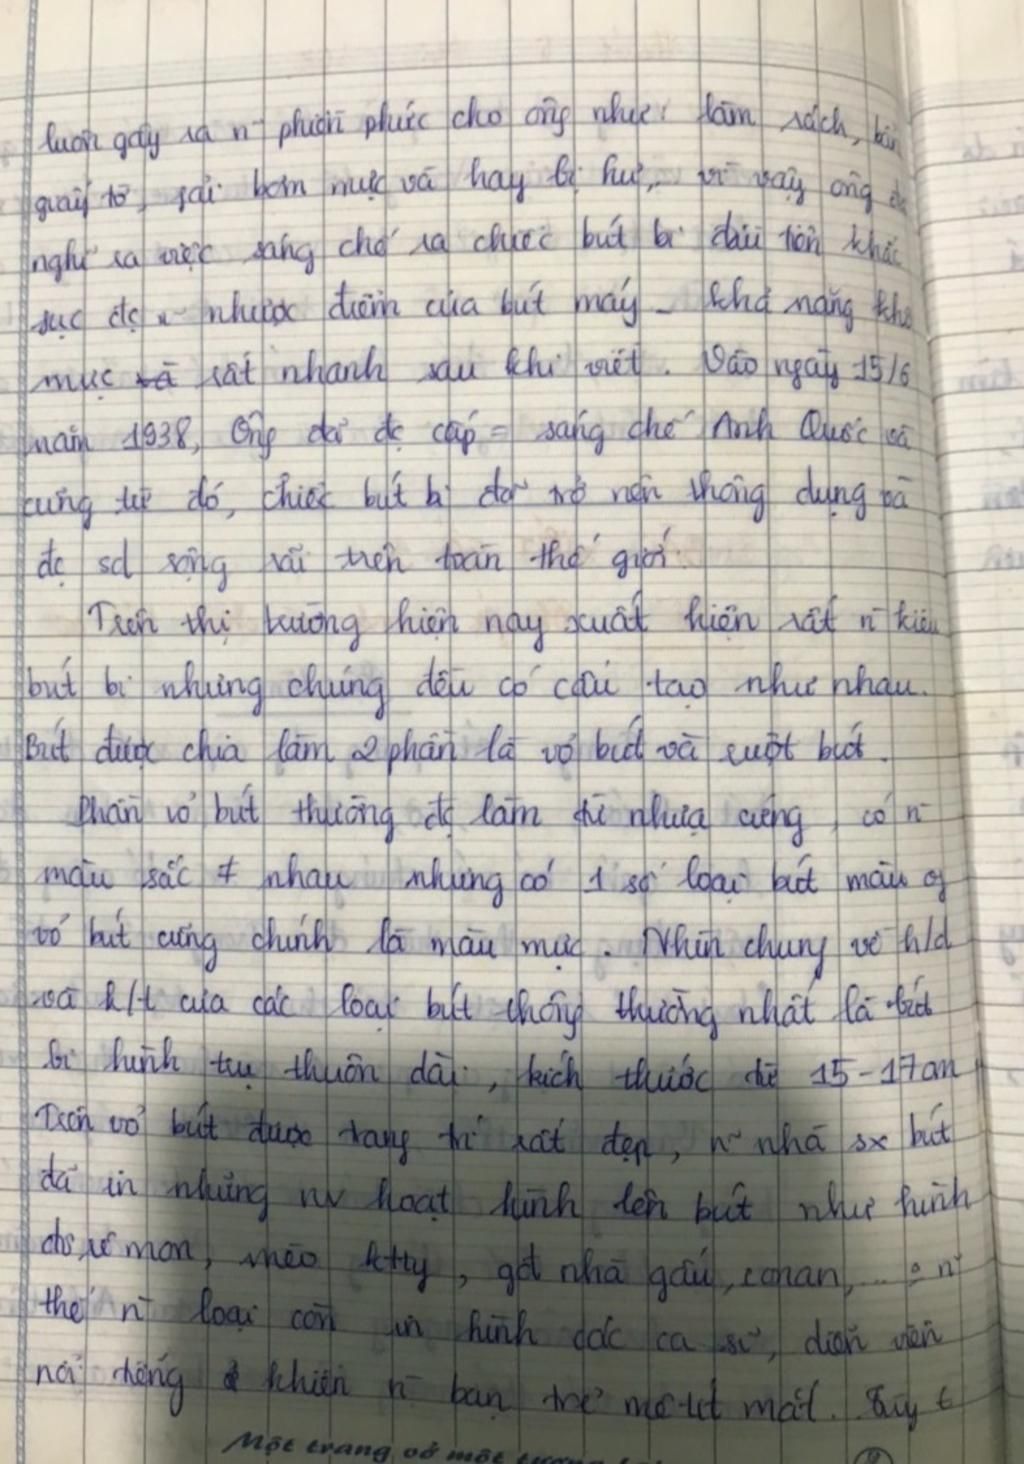 luôn gây ra n~ phiền phức cho ông như: làm rách, bẩn
giấy tờ, fải bơm mực và hay bị hư, vì vậy ông đã
nghĩ ra việc sáng chế ra chiếc bút bi đầu tiên khắc
sục đc n~ nhược điểm của bút máy - khả năng khô
mực rất nhanh sau khi viết. Vào ngày 15/6
năm 1938, Ông đã đc cấp = sáng chế Anh Quốc và
cũng từ đó, chiếc bút bi đã trở nên thông dụng và
đc sd rộng rãi trên toàn thế giới.
Trên thị trường hiện nay xuất hiện rất n~ kiểu
bút bi nhưng chúng đều có cấu tạo như nhau.
Bút được chia làm 2 phần là vỏ bút và ruột bút.
Phần vỏ bút thường đc làm từ nhựa cứng, có n~
màu sắc ≠ nhau nhưng có 1 số loại bút màu of
vỏ bút cũng chính là màu mực. Nhìn chung về h/d
và k/t của các loại bút thông thường nhất là bút
bi hình trụ thuôn dài, kích thước từ 15-17cm
Trên vỏ bút được trang trí rất đẹp, n~ nhà sx bút
đã in những nv hoạt hình lên bút như hình
đô rê mon, mèo kitty, gót nhà gấu, conan, ... n~
thế n~ loại còn in hình các ca sĩ, diễn viên
nổi tiếng khiến n~ bạn trẻ mê tít mắt. Tùy t
Một trang vở một tương